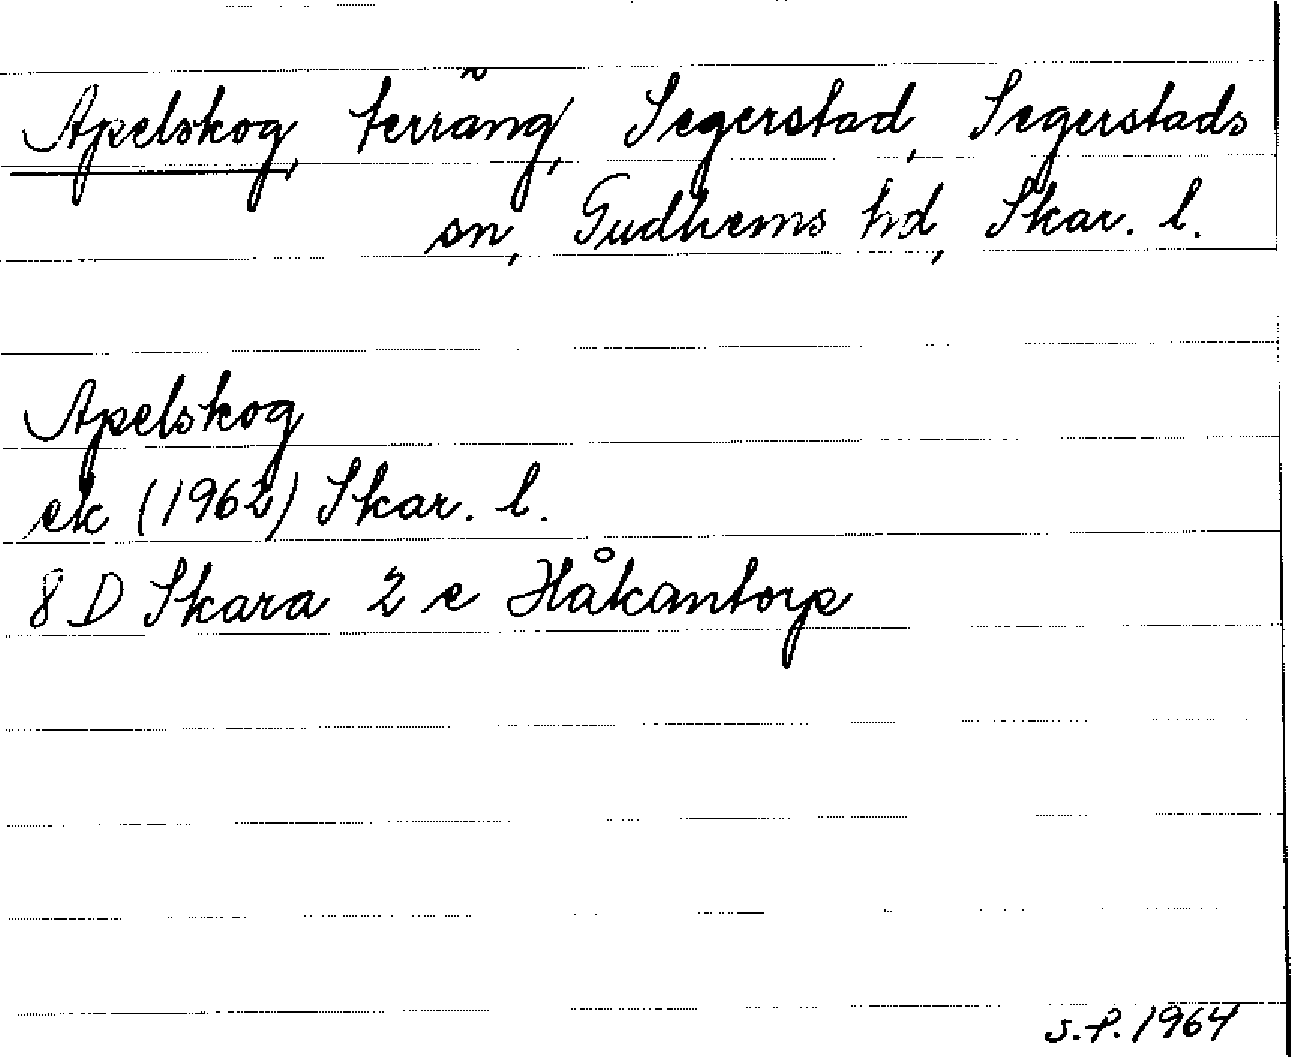 Apelskog, terräng, Segerstad, Segerstads
sn, Gudhems hd, Skar. l.
Apelskog
ek (1962) Skar. l.
8 D Skara 2 e Håkantorp
S.P. 1964